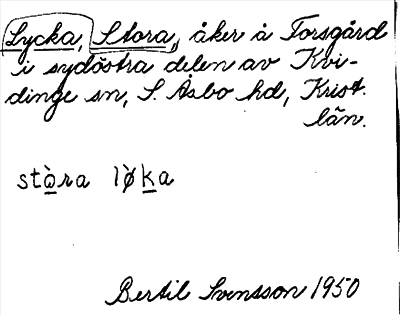 Lycka, Stora, åker å Forsgård
i sydöstra delen av Kvi-
dinge sn, S. Åsbo hd, Krist.
län.
stò̲ra lø̀k̲a
Bertil Svensson 1950